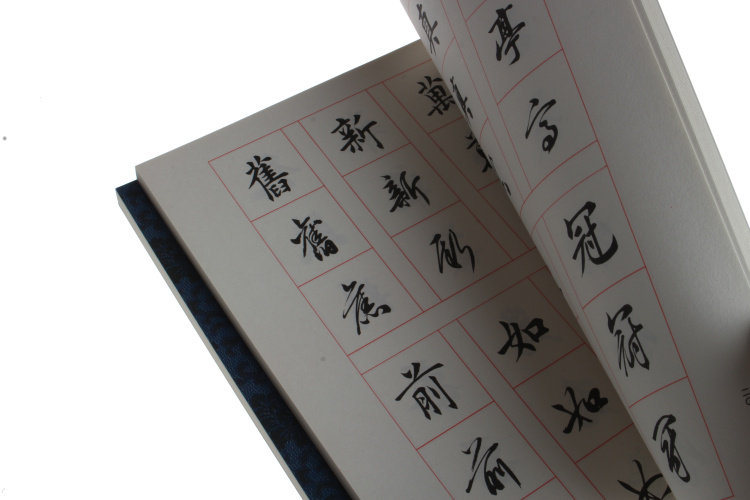 亭
亭
冠
冠
冠
真
萬
新
新
新
如
如
舊
舊
舊
前
前